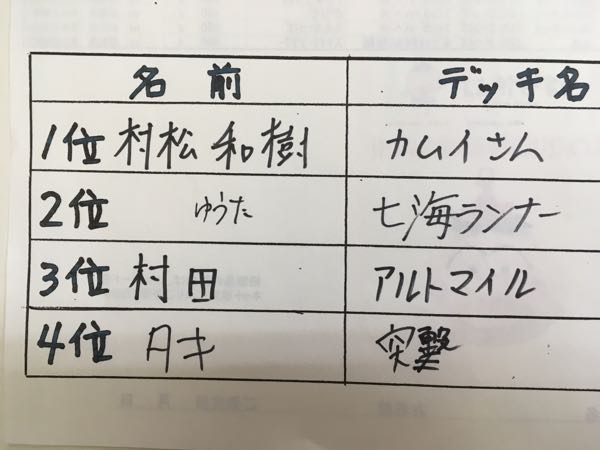 名前 デッキ名
1位 村松 和樹 カムイさん
2位 ゆうた 七海ランナー
3位 村田 アルトマイル
4位 タキ 突撃